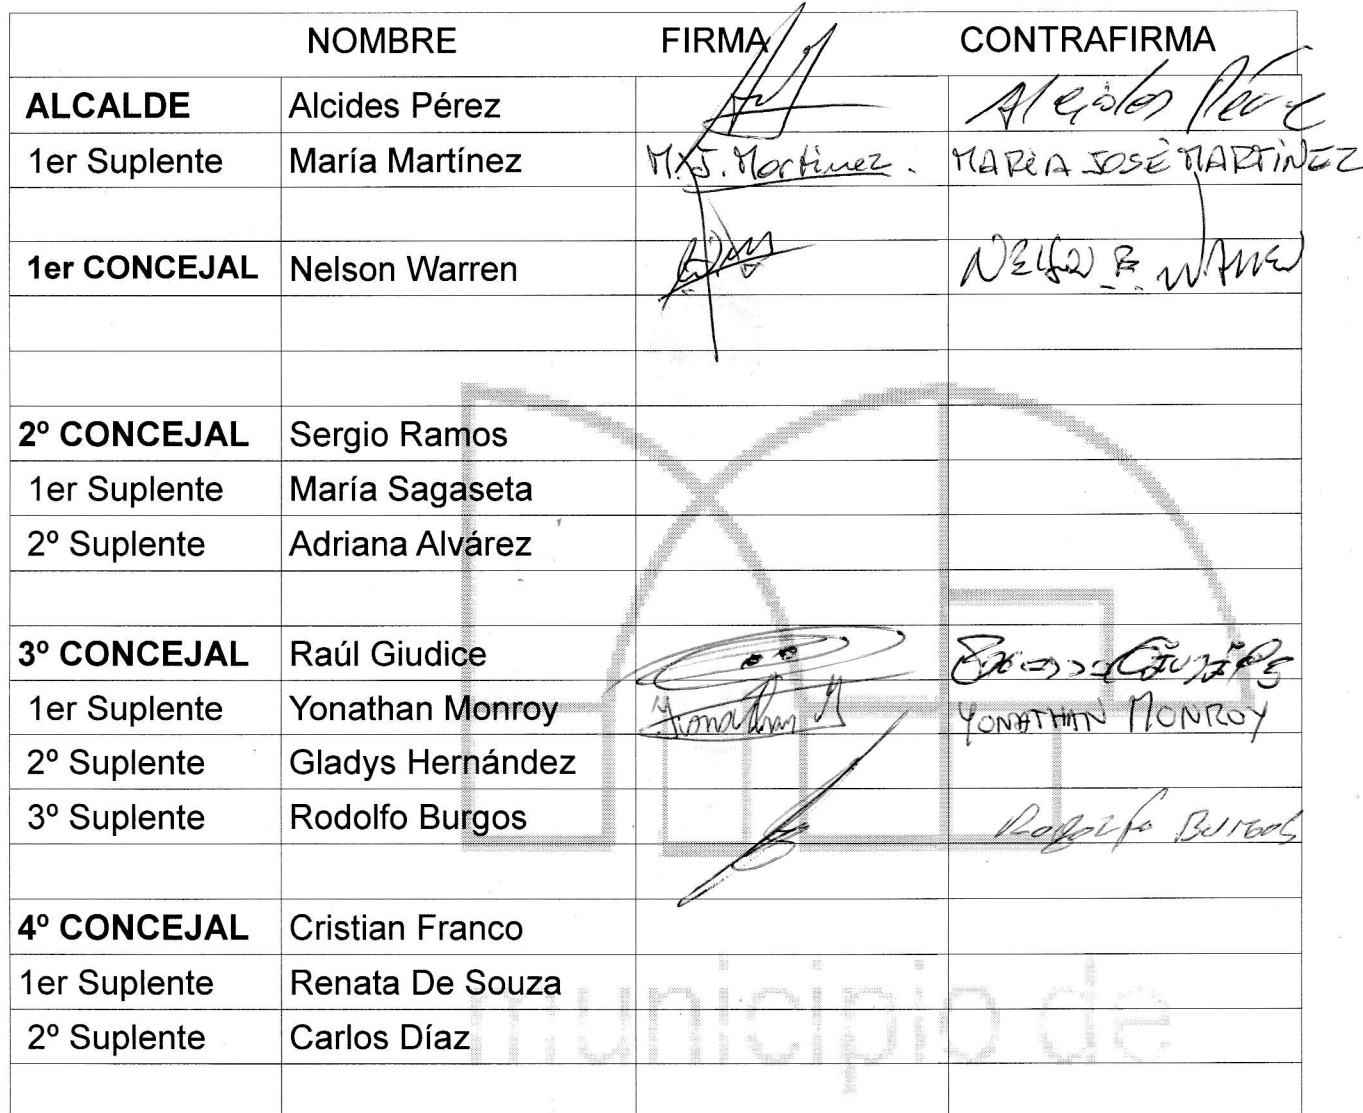 NOMBRE FIRMA CONTRAFIRMA
ALCALDE Alcides Pérez Alcides Pérez
1er Suplente María Martínez M.J. Martinez. MARÍA JOSÉ MARTÍNEZ
1er CONCEJAL Nelson Warren
2º CONCEJAL Sergio Ramos
1er Suplente María Sagaseta
2º Suplente Adriana Alvárez
3º CONCEJAL Raúl Giudice
1er Suplente Yonathan Monroy Yonathan M YONATHAN MONROY
2º Suplente Gladys Hernández
3º Suplente Rodolfo Burgos Rodolfo Burgos
4º CONCEJAL Cristian Franco
1er Suplente Renata De Souza
municipio de
2º Suplente Carlos Díaz